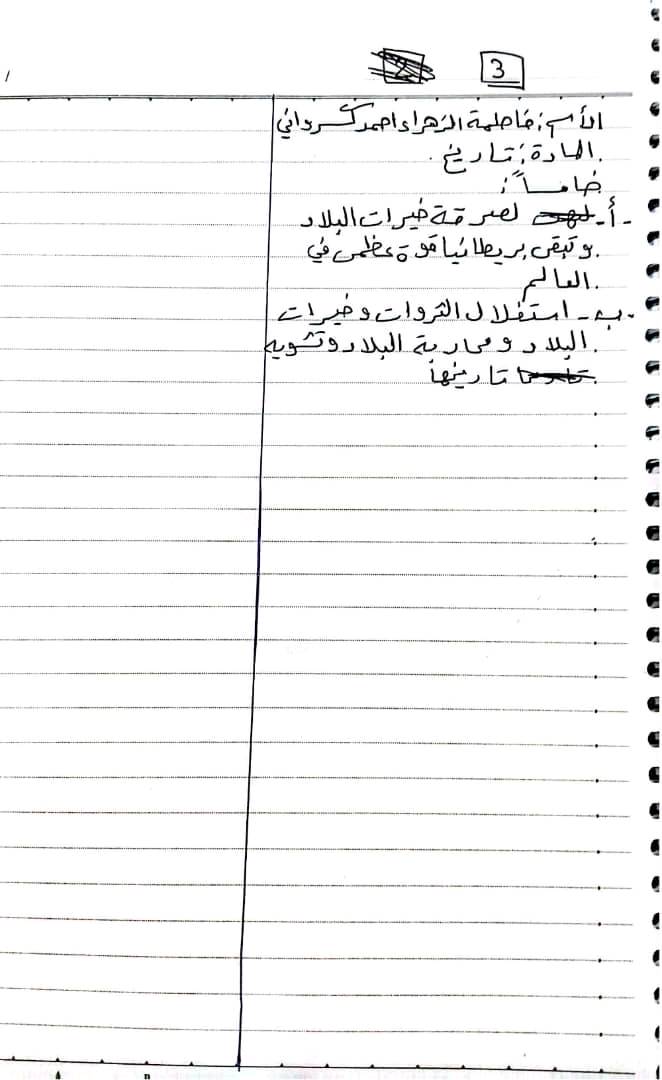 3
الأسم: فاطمة الزهراء احمد كرواني
المادة: تاريخ.
خامساً:
أ- لصرقة خيرات البلاد
وتبقى بريطانيا قوة عظمى في
العالم.
ب- استغلال الثروات وخيرات
البلاد ومحاربة البلاد وتشويه
تاريخها